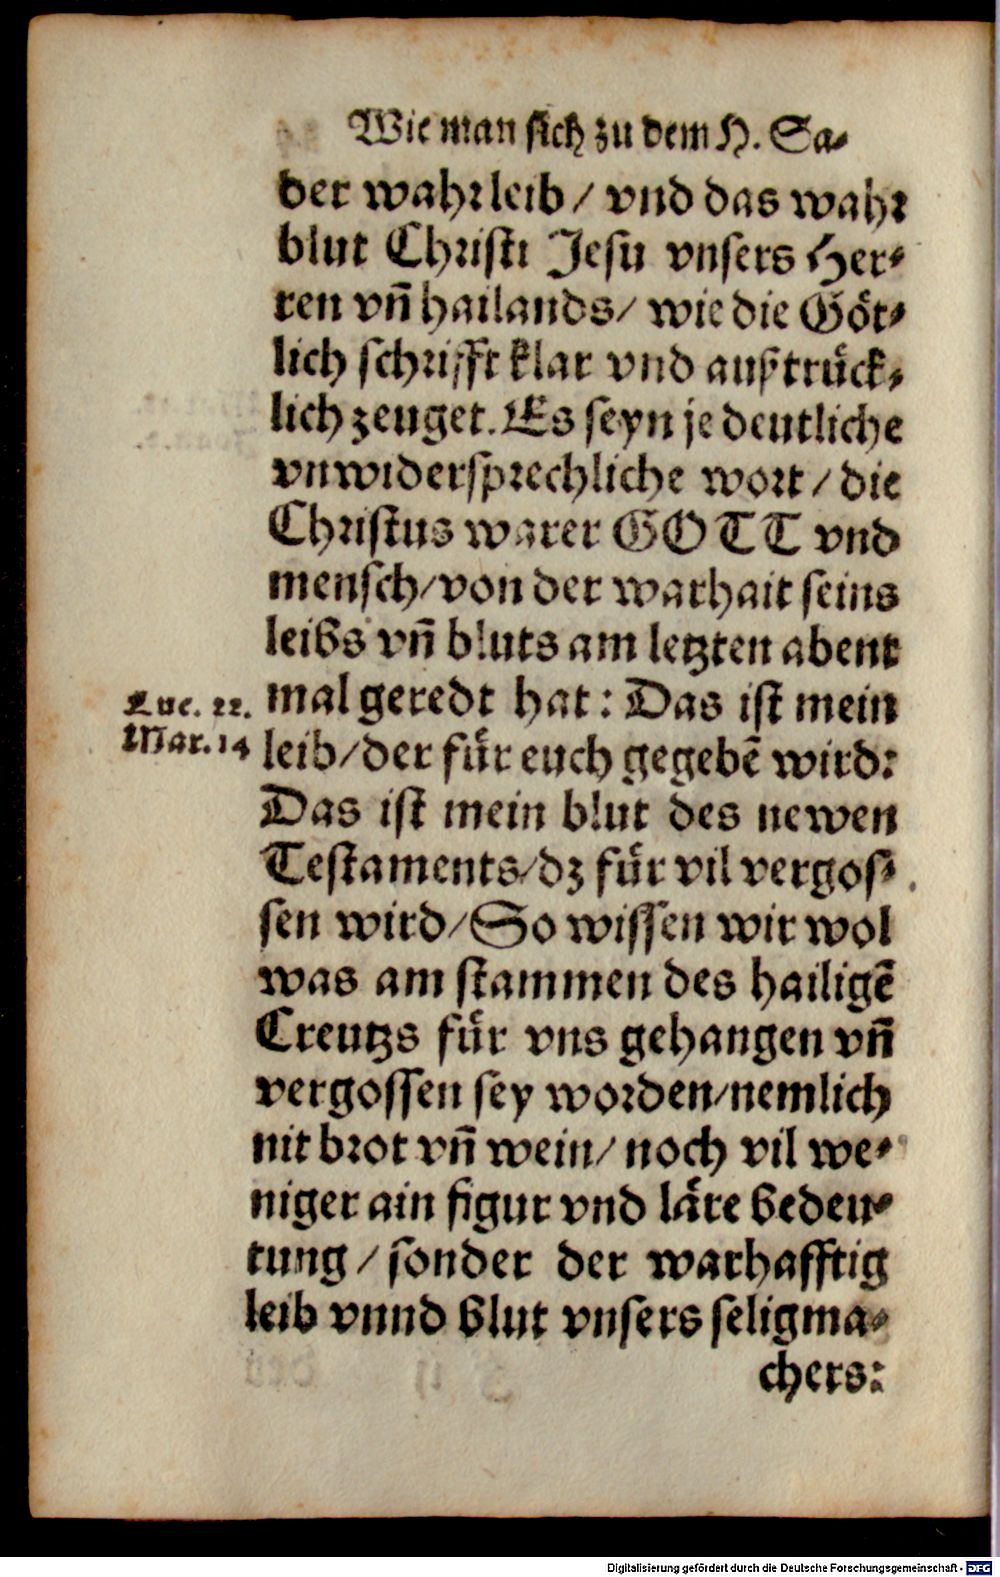 Wie man sich zu dem H. Sa-
der wahr leib / vnd das wahr
blut Christi Jesu vnsers Her-
ren vñ hailands / wie die Göt-
lich schrifft klar vnd außtrück-
lich zeuget. Es seyn je deutliche
vnwidersprechliche wort / die
Christus warer GOTT vnd
mensch / von der warhait seins
leibs vñ bluts am letzten abent
Luc. 22. mal geredt hat: Das ist mein
Mar. 14 leib / der für euch gegebẽ wird:
Das ist mein blut des newen
Testaments / dz für vil vergos-
sen wird / So wissen wir wol
was am stammen des hailigẽ
Creutzs für vns gehangen vñ
vergossen sey worden / nemlich
nit brot vñ wein / noch vil we-
niger ain figur vnd läre bedeu-
tung / sonder der warhafftig
leib vnnd blut vnsers seligma-
chers:
Digitalisierung gefördert durch die Deutsche Forschungsgemeinschaft - DFG